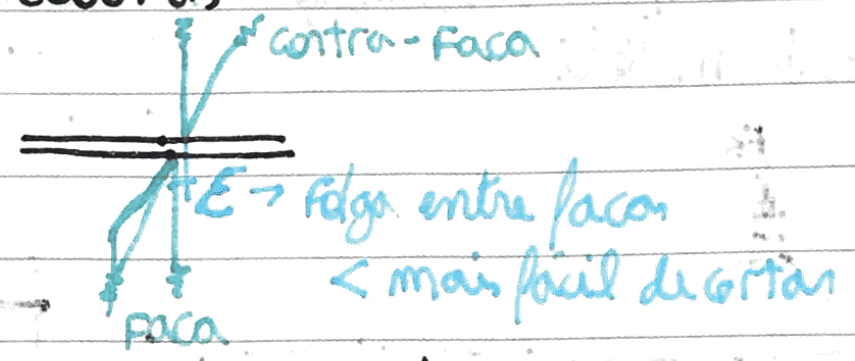 contra-Faca
E → Folga entre facas
< mais fácil de cortar
Faca